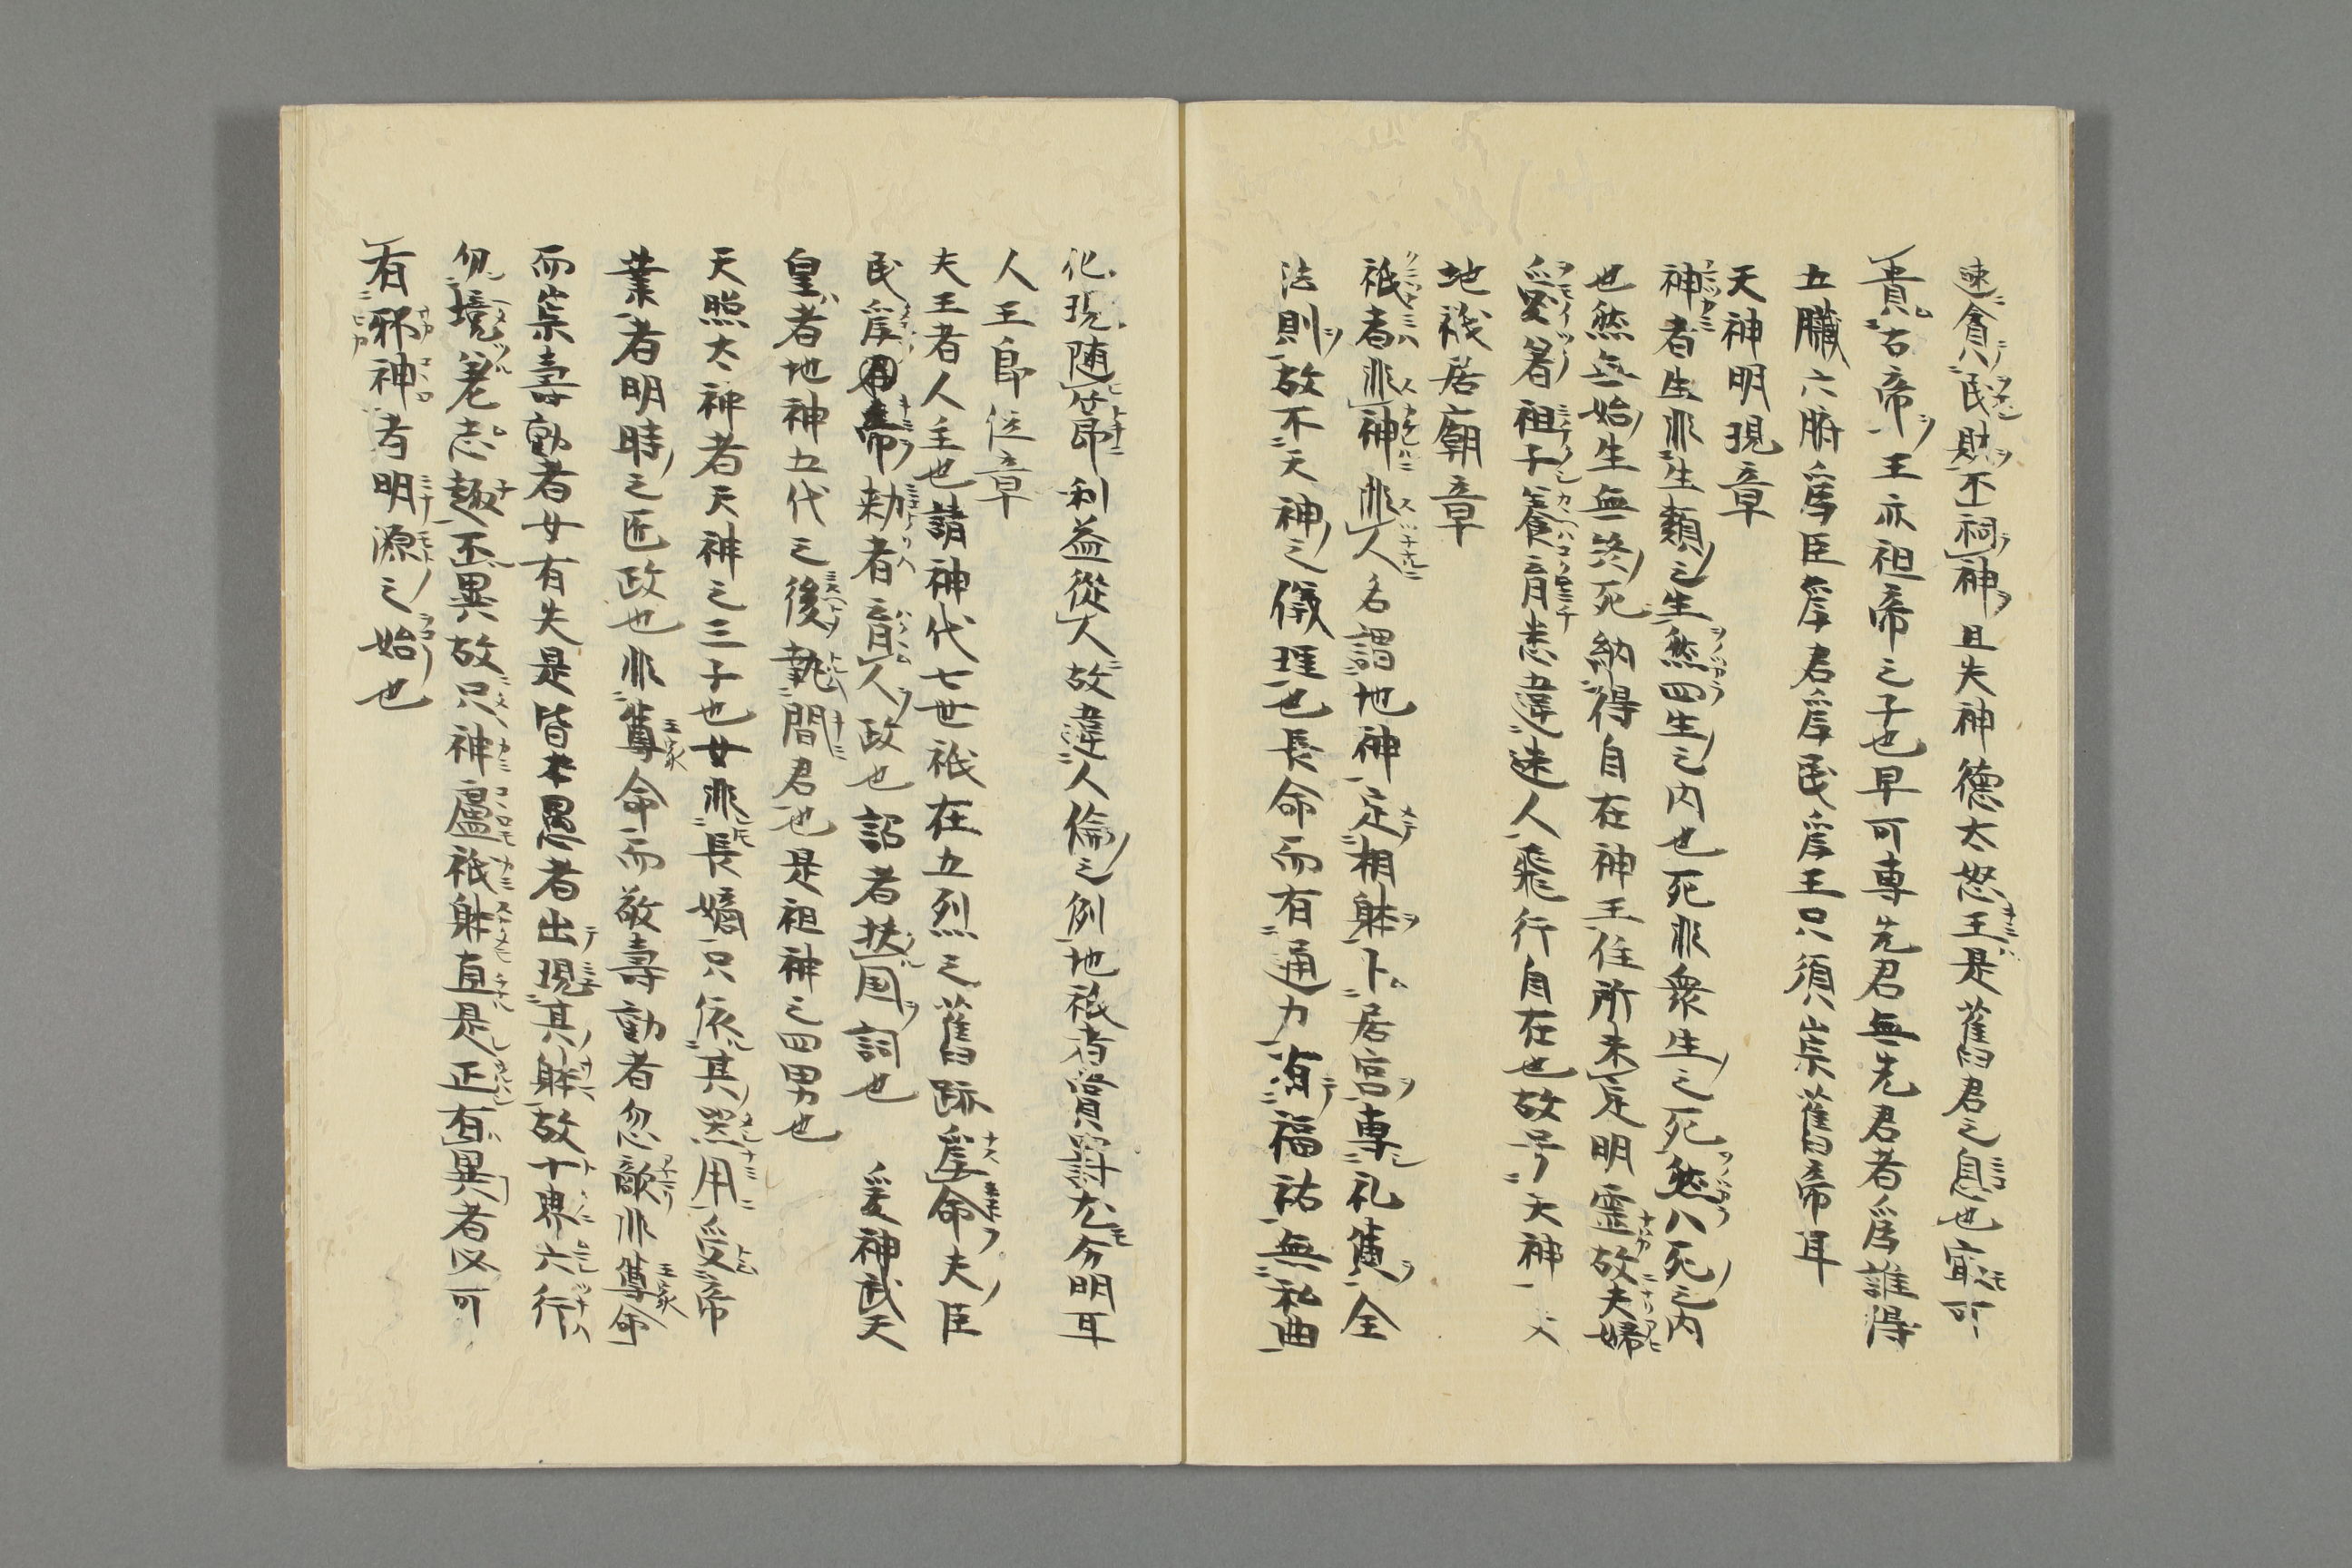 速貪民財不祠神且失神德太怒王是舊君之息也寔可
貴古帝王亦祖帝之子也早可専先君無先君者爲誰得
五臓六腑爲臣爲君爲民爲王只須崇舊帝耳
天神明現章
神者生非生類之生然四生之内也死非衆生之死然八死之内
也然無始生無終死納得自在神王住所未定明霊故夫婦
愛着祖子養育悉違迷人飛行自在也故号天神一
地祇居廟章
祇者非神非人名謂地神定相躰卜居宮専礼奠全
法則故不天神之儀理也長命而有通力海福祐無私曲
化現随節利益從人故違人倫之例地祇者賞罸尤分明耳
人王即位章
夫王者人主也請神代七世祇在五烈之舊跡爲命夫臣
民爲帝勅者育人政也詔者扶国詞也 爰神武天
皇者地神五代之後執間君也是祖神之四男也
天照太神者天神之三子也女非長嫡只依其器用受帝
業者明時之匠政也非尊王家命而敬壽勧者忽敵非尊王家命
而崇壽勧者女有失是皆本愚者出現其躰故十典六行
勿境差志趣不異故只神廬祇躰直是正有異者必可
有邪神者明源之始也